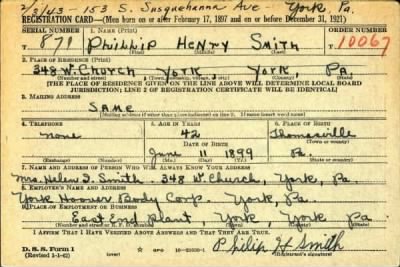 2/3/43 153 S. Susquehanna Ave York, Pa.
REGISTRATION CARD—(Men born on or after February 17, 1897 and on or before December 31, 1921)
SERIAL NUMBER 1. NAME (Print) ORDER NUMBER
871 Phillip Henry Smith 10067
(First) (Middle) (Last)
2. PLACE OF RESIDENCE (Print)
348 W. Church York, York, Pa
(Number and street) (Town, township, village, or city) (County) (State)
[THE PLACE OF RESIDENCE GIVEN ON THE LINE ABOVE WILL DETERMINE LOCAL BOARD
JURISDICTION; LINE 2 OF REGISTRATION CERTIFICATE WILL BE IDENTICAL]
3. MAILING ADDRESS
SAME
[Mailing address if other than place indicated on line 2. If same insert word same]
4. TELEPHONE 5. AGE IN YEARS 6. PLACE OF BIRTH
none 42 Thomasville
DATE OF BIRTH (Town or county)
June 11 1899 Pa.
(Mo.) (Day) (Yr.) (State or country)
7. NAME AND ADDRESS OF PERSON WHO WILL ALWAYS KNOW YOUR ADDRESS
Mrs. Helen I. Smith. 348 W. Church, York, Pa.
8. EMPLOYER'S NAME AND ADDRESS
York Hoover Body Corp. York, Pa.
9. PLACE OF EMPLOYMENT OR BUSINESS
East End Plant, York, York Pa
(Number and street or R. F. D. number) (Town) (County) (State)
I AFFIRM THAT I HAVE VERIFIED ABOVE ANSWERS AND THAT THEY ARE TRUE.
D. S. S. Form 1
(Revised 1-1-42) GPO Philip H Smith
(Registrant's signature)